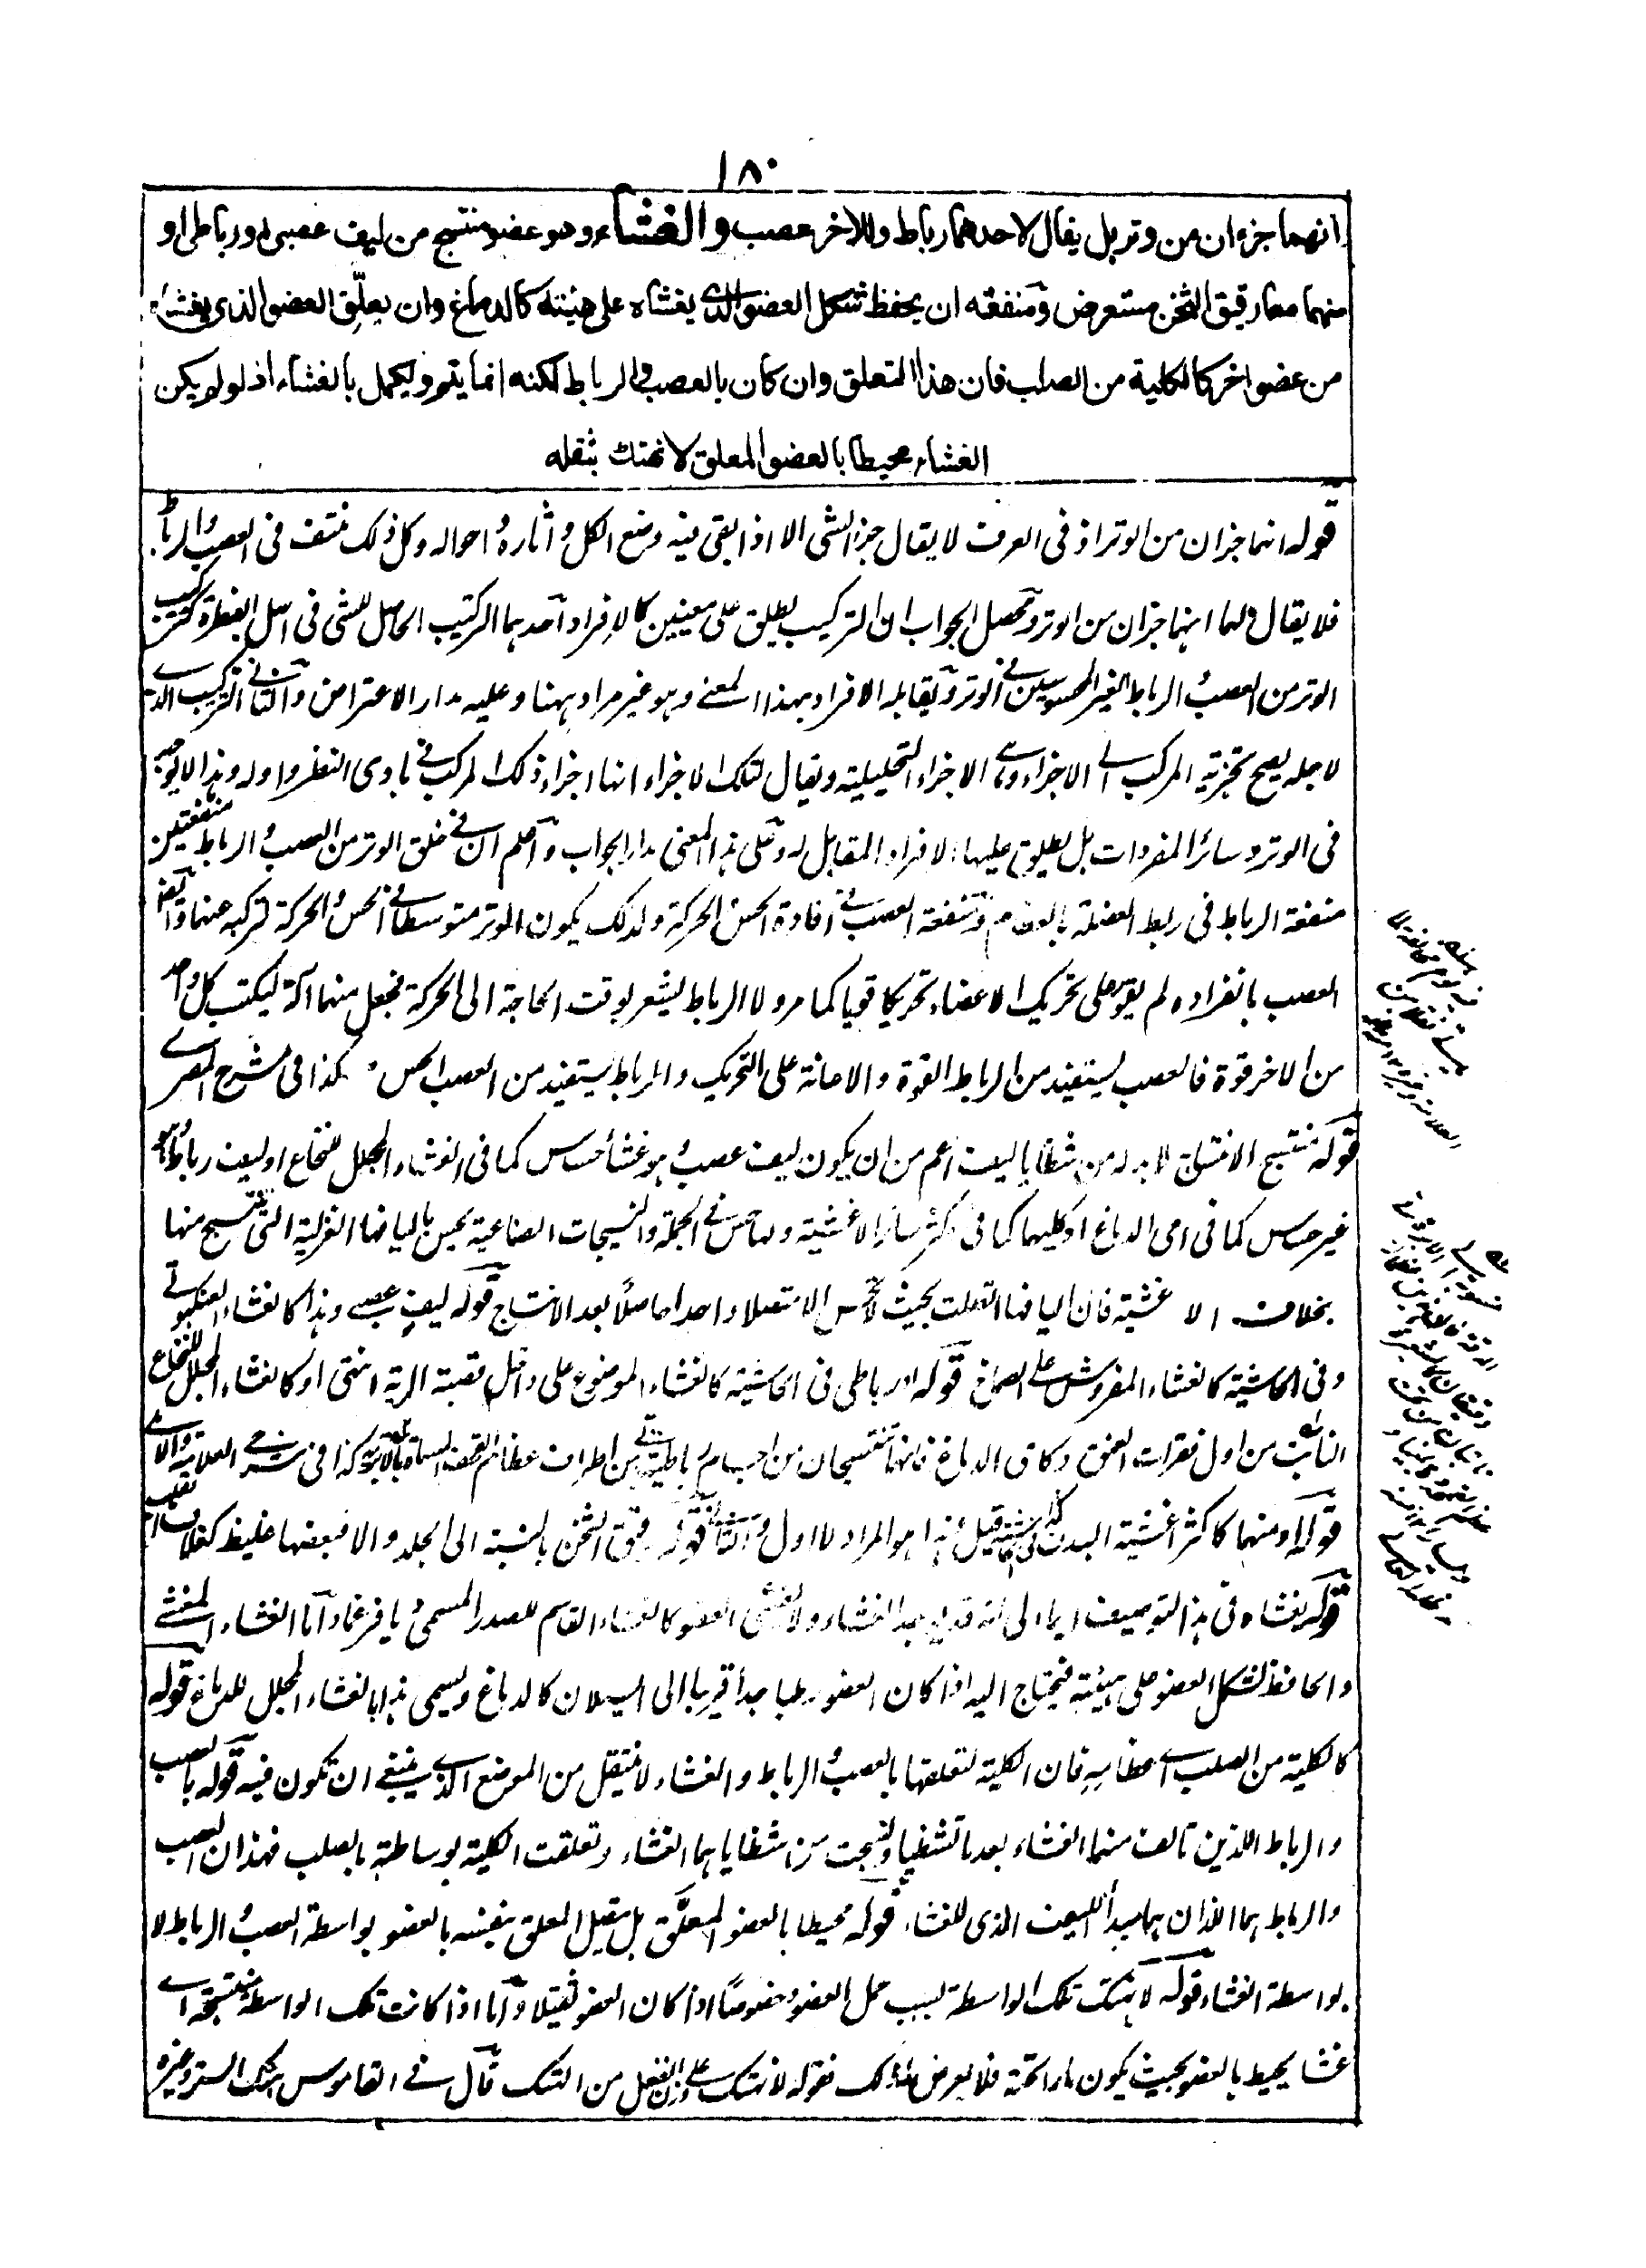 ١٨٠
انهما جزءان من وتر بل يقال لاحدهما رباط وللاخر عصب والغشاء وهو عضو منتسج من ليف عصبى او رباطى او
منهما معا رقيق الثخن مستعرض ومنفعته ان يحفظ شكل العضو الذى يغشاه على هيئته كالدماغ وان يعلّق العضو الذى يغشاه
من عضو اخر كالكلية من الصلب فان هذا التعلق وان كان بالعصب والرباط لكنه انما يتم ويكمل بالغشاء اذ لو لم يكن
الغشاء محيطا بالعضو المعلق لانهتك بثقله
قوله انهما جزان من الوتر اذ فى العرف لا يقال جزء الشى الا اذا بقى فيه وضع الكل و اثاره و احواله وكل ذلك منتف فى العصب والرباط
فلا يقال لهما انهما جزان من الوتر ومحصل الجواب ان التركيب يطلق على معنيين كالافراد احدهما التركيب الحاصل للشى فى اصل الفطرة كتركيب
الوتر من العصب والرباط الغير المحسوسين فى الوتر ويقابله الافراد بهذا المعنى وهو غير مراد ههنا وعليه مدار الاعتراض والثانى التركيب الذى
لاجله يصح تجزية المركب الى الاجزاء الاجزاء التحليلية ويقال لتلك الاجزاء انها اجزاء ذلك المركب فى بادى النظر واوله وهذا لا يوجد
فى الوتر وسائر المفردات بل يطلق عليها الافراد المقابل له وعلى هذا المعنى مدار الجواب واعلم ان فى خلق الوتر من العصب والرباط منفعتين
منفعة الرباط فى ربط العضلة بالعظام ومنفعة العصب فى افادة الحس والحركة ولذلك يكون الوتر متوسطا فى الحس والحركة لتركبه عنهما وايضا
العصب بانفراده لم يقو على تحريك الاعضاء تحريكا قويا كما مر ولا الرباط ليشعر بوقت الحاجة الى الحركة فجعل منهما آلة ليكتسب كل واحد
من الاخر قوة فالعصب يستفيد من الرباط القوة والاعانة على التحريك والرباط يستفيد من العصب الحس كذا فى شرح المصرى
قوله منتسج الانتساج لا بد له من شظايا ليف اعم من ان يكون ليف عصب وهو غشاء حساس كما فى الغشاء المجلل للنخاع او ليف رباط وهو
غير حساس كما فى امى الدماغ او كليهما كما فى اكثر سائر الاغشية ولها حس فى الجملة والنسيجات الصناعية يحس باليافها الغزلية التى تنتسج منها
بخلاف الاغشية فان اليافها اتصلت بحيث لا تحس الا متصلا واحدا حاصلاً بعد الانتساج قوله ليف عصبى وهذا كالغشاء العنكبوتى
وفى الحاشية كالغشاء المفروش على الصماخ قوله او رباطى فى الحاشية كالغشاء الموضوع على داخل قصبة الرية انتهى او كالغشاء المجلل للنخاع
النابت من اول فقرات العنق وكامى الدماغ فانهما تنتسجان من اجسام رباطية من اطراف عظام القحف كذا فى شرح العلامة
قوله او منهما كاكثر اغشية البدن قيل هذا هو المراد لا الاول والثانى قوله رقيق الثخن بالنسبة الى الجلد والا فبعضها غليظ كغلاف القلب
قوله يغشاه فى هذا التوصيف ايماء الى انه قد يوجد الغشاء ولا يغشى العضو كالغشاء القاسم للصدر المسمى ديافرغما واما الغشاء المغشى
والحافظ لشكل العضو على هيئته فيحتاج اليه اذا كان العضو رطبا جدا قريبا الى السيلان كالدماغ ويسمى هذا بالغشاء المجلل للدماغ قوله
كالكلية من الصلب اى عظامه فان الكلية لتعلقها بالعصب والرباط والغشاء لا تنتقل من الموضع الذى ينبغى ان تكون فيه قوله بالعصب
والرباط اللذين تالف منهما الغشاء بعد ما تشظيا وانتسجت من شظاياهما الغشاء وتعلقت الكلية بوساطته بالصلب فهذان العصب
والرباط هما اللذان هما مبدأ الليف الذى للغشاء قوله محيطا بالعضو المعلّق بل يتصل المعلق بنفسه بالعضو بواسطة العصب والرباط لا
بواسطة الغشاء قوله لانهتك تلك الواسطة بسبب حمل العضو خصوصاً اذا كان العضو ثقيلا واما اذا كانت تلك الواسطة منتسجة اى
غشاء يحيط بالعضو بحيث يكون مارا تحته فلا يعرض ذلك فقوله لانهتك على وزن انفعل من الهتك قال فى القاموس هتك الستر وغيره